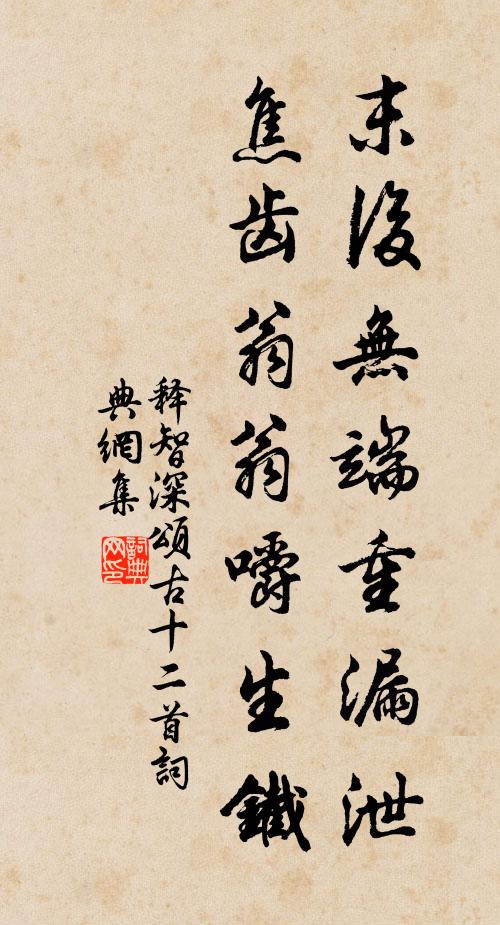 末後無端重漏泄
焦齿翁翁嚼生鐵
释智深頌古十二首詞
典網集
詞典
网印